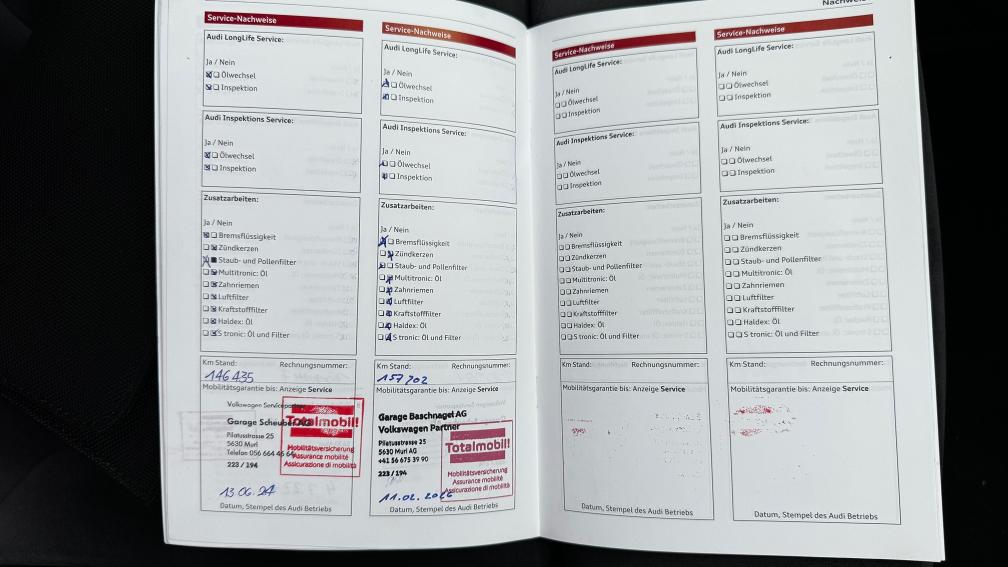 Service-Nachweise
Audi LongLife Service:
Ja / Nein
Ölwechsel
Inspektion
Audi Inspektions Service:
Ja / Nein
Ölwechsel
Inspektion
Zusatzarbeiten:
Ja / Nein
Bremsflüssigkeit
Zündkerzen
Staub- und Pollenfilter
Multitronic: Öl
Zahnriemen
Luftfilter
Kraftstofffilter
Haldex: Öl
S tronic: Öl und Filter
Km Stand: Rechnungsnummer:
146 435
Mobilitätsgarantie bis: Anzeige Service
Volkswagen Servicepartner
Garage Scheuber AG
Pilatusstrasse 25
5630 Muri
Telefon 056 664 46 64
223 / 194
Totalmobil!
Mobilitätsversicherung
Assurance mobilité
Assicurazione di mobilità
13.06.24
Datum, Stempel des Audi Betriebs
Service-Nachweise
Audi LongLife Service:
Ja / Nein
Ölwechsel
Inspektion
Audi Inspektions Service:
Ja / Nein
Ölwechsel
Inspektion
Zusatzarbeiten:
Ja / Nein
Bremsflüssigkeit
Zündkerzen
Staub- und Pollenfilter
Multitronic: Öl
Zahnriemen
Luftfilter
Kraftstofffilter
Haldex: Öl
S tronic: Öl und Filter
Km Stand: Rechnungsnummer:
157 702
Mobilitätsgarantie bis: Anzeige Service
Garage Baschnagel AG
Volkswagen Partner
Pilatusstrasse 25
5630 Muri AG
+41 56 675 39 90
223 / 194
Totalmobil!
Mobilitätsversicherung
Assurance mobilité
Assicurazione di mobilità
11.02.2026
Datum, Stempel des Audi Betriebs
Service-Nachweise
Audi LongLife Service:
Ja / Nein
Ölwechsel
Inspektion
Audi Inspektions Service:
Ja / Nein
Ölwechsel
Inspektion
Zusatzarbeiten:
Ja / Nein
Bremsflüssigkeit
Zündkerzen
Staub- und Pollenfilter
Multitronic: Öl
Zahnriemen
Luftfilter
Kraftstofffilter
Haldex: Öl
S tronic: Öl und Filter
Km Stand: Rechnungsnummer:
Mobilitätsgarantie bis: Anzeige Service
Datum, Stempel des Audi Betriebs
Service-Nachweise
Audi LongLife Service:
Ja / Nein
Ölwechsel
Inspektion
Audi Inspektions Service:
Ja / Nein
Ölwechsel
Inspektion
Zusatzarbeiten:
Ja / Nein
Bremsflüssigkeit
Zündkerzen
Staub- und Pollenfilter
Multitronic: Öl
Zahnriemen
Luftfilter
Kraftstofffilter
Haldex: Öl
S tronic: Öl und Filter
Km Stand: Rechnungsnummer:
Mobilitätsgarantie bis: Anzeige Service
Datum, Stempel des Audi Betriebs